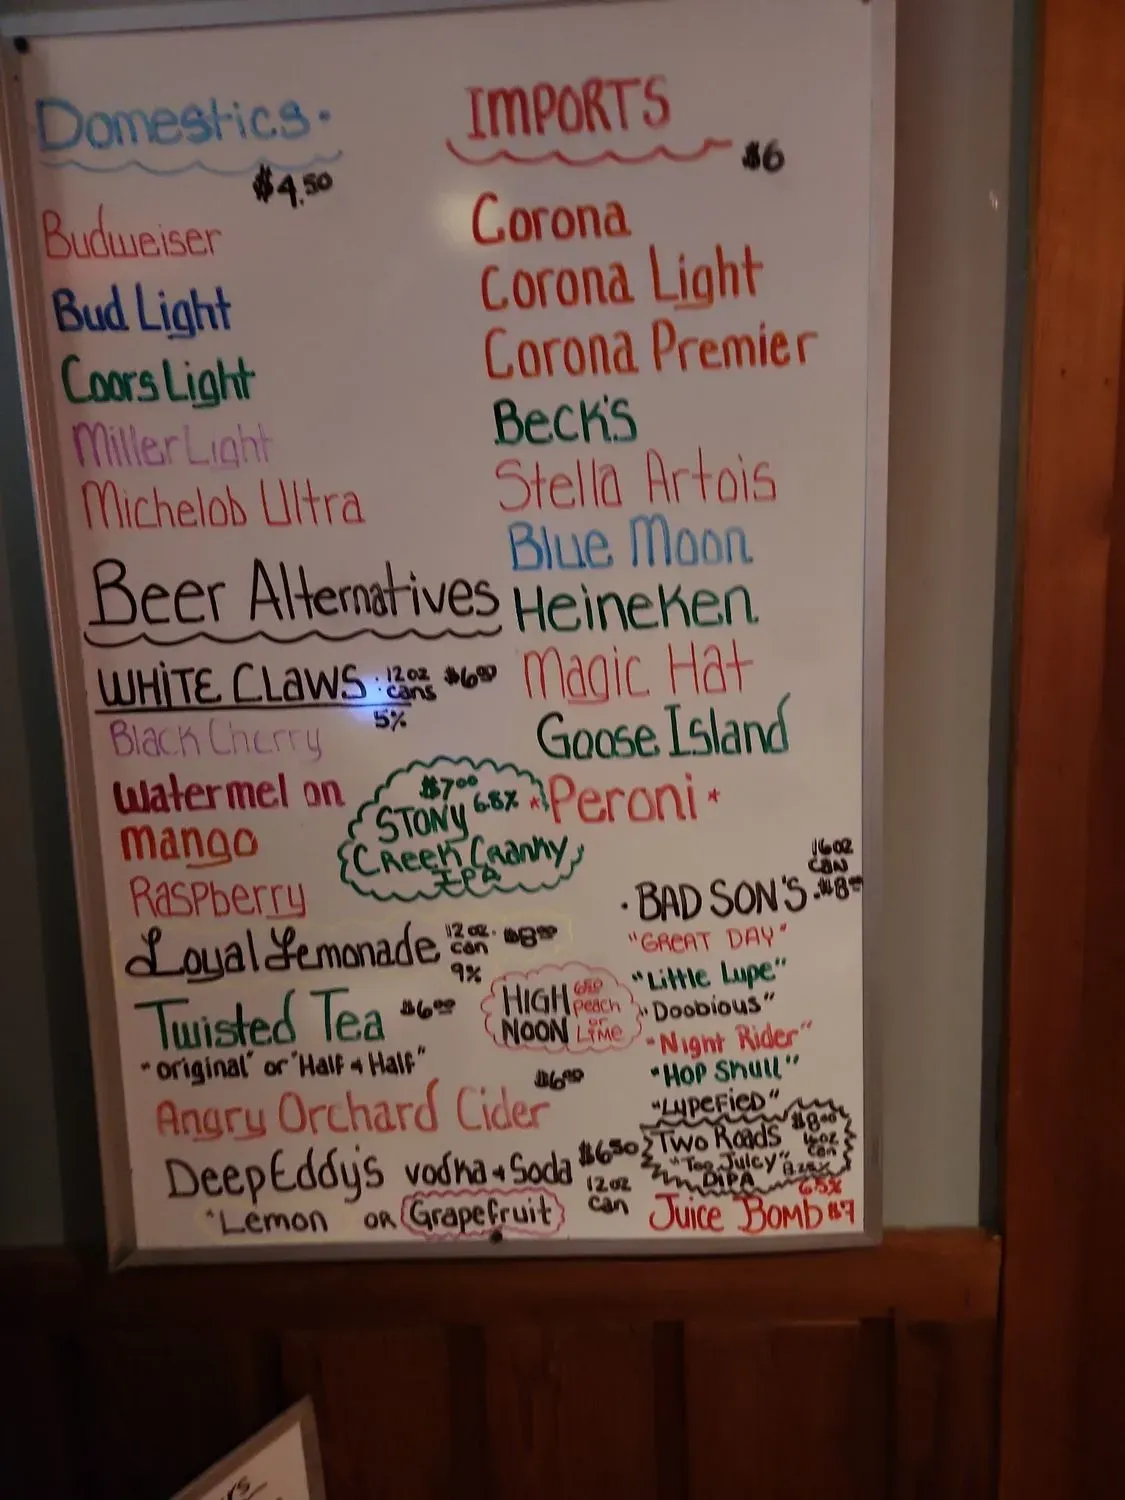 Domestics.
$4.50
Budweiser
Bud Light
Coors Light
Miller Light
Michelob Ultra
Beer Alternatives
WHITE CLAWS 12 oz cans $6.00
5%
Black Cherry
Watermelon
mango
Raspberry
$7.00
STONY 6.8%
Creek Cranky
IPA
Loyal Lemonade 12 oz. can $8.00
9%
Twisted Tea $6.00
"original" or "Half & Half"
HIGH NOON
6.50
Peach
or
LIME
$6.00
Angry Orchard Cider
Deep Eddy's vodka & Soda $6.50
12 oz can
"Lemon OR Grapefruit
IMPORTS
$6
Corona
Corona Light
Corona Premier
Beck's
Stella Artois
Blue Moon
Heineken
Magic Hat
Goose Island
*Peroni*
16 oz
CAN
· BAD SON'S $8
"GREAT DAY"
"Little Lupe"
"Doobious"
"Night Rider"
"Hop Skull"
"Lupefied"
Two Roads $8.00
"Too Juicy" 16 oz can
DIPA
6.5%
Juice Bomb $7